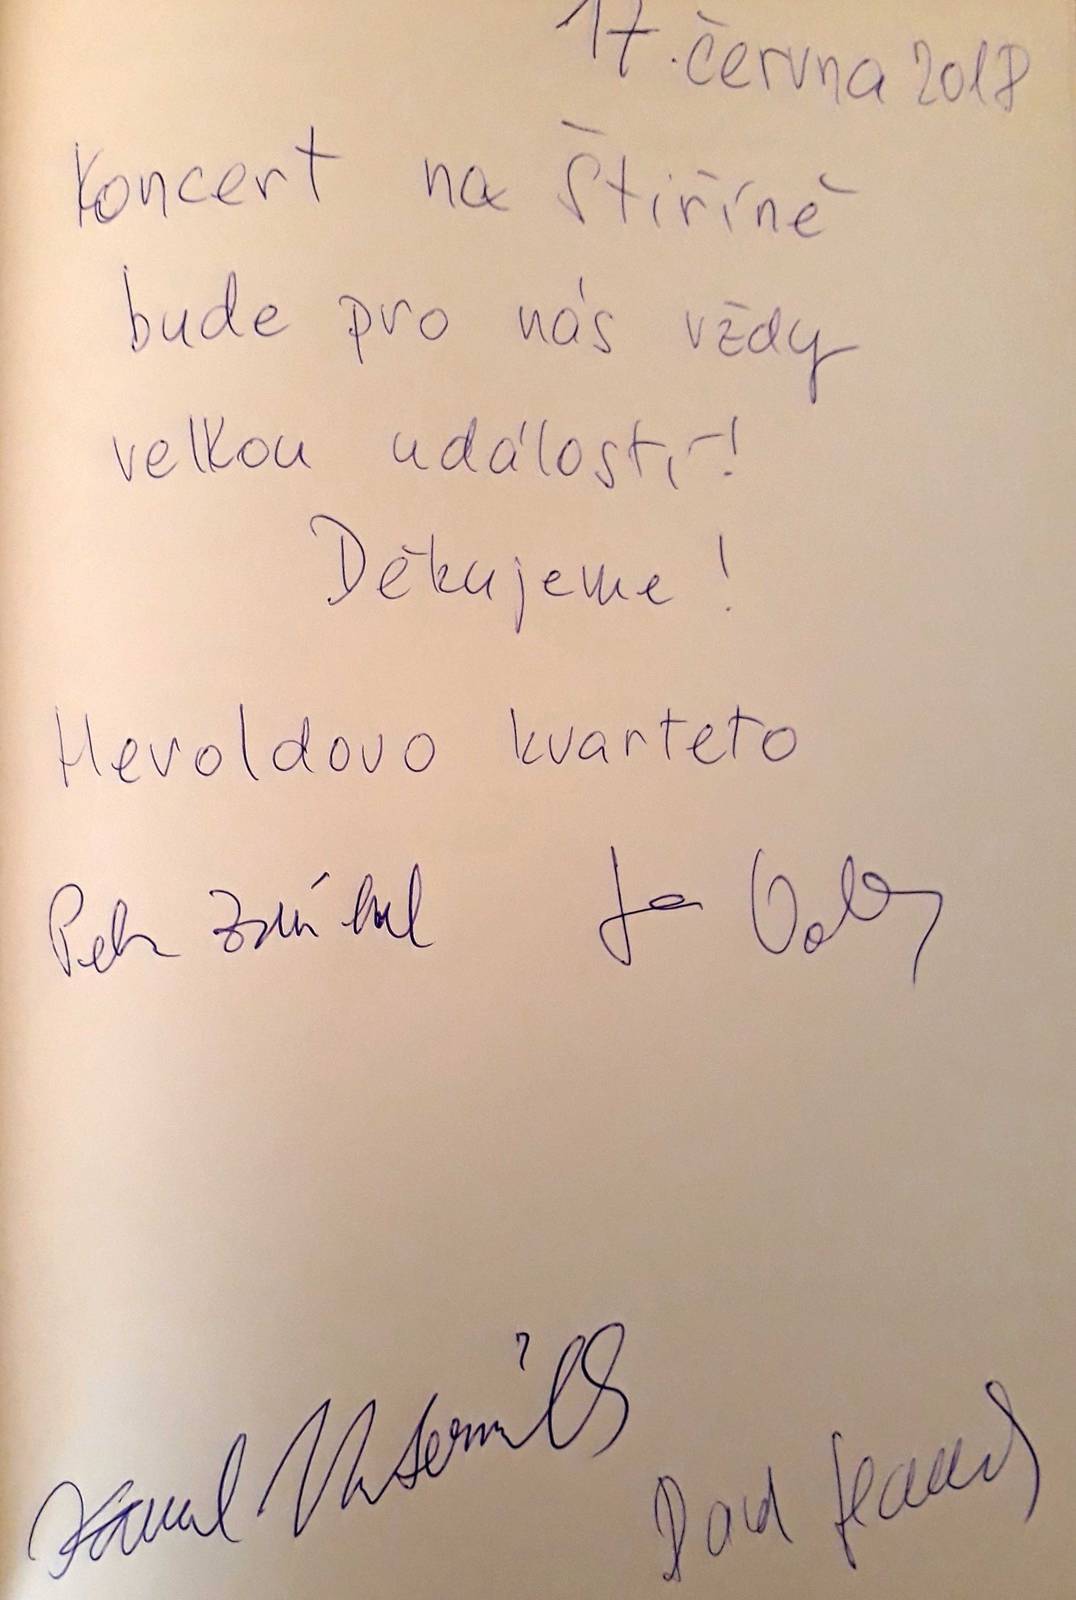 17. června 2018
Koncert na Štiříně
bude pro nás vždy
velkou událostí!
Děkujeme!
Heroldovo kvarteto
Petr Zdvihal Jan Valta
Karel Untermüller
David Havelík